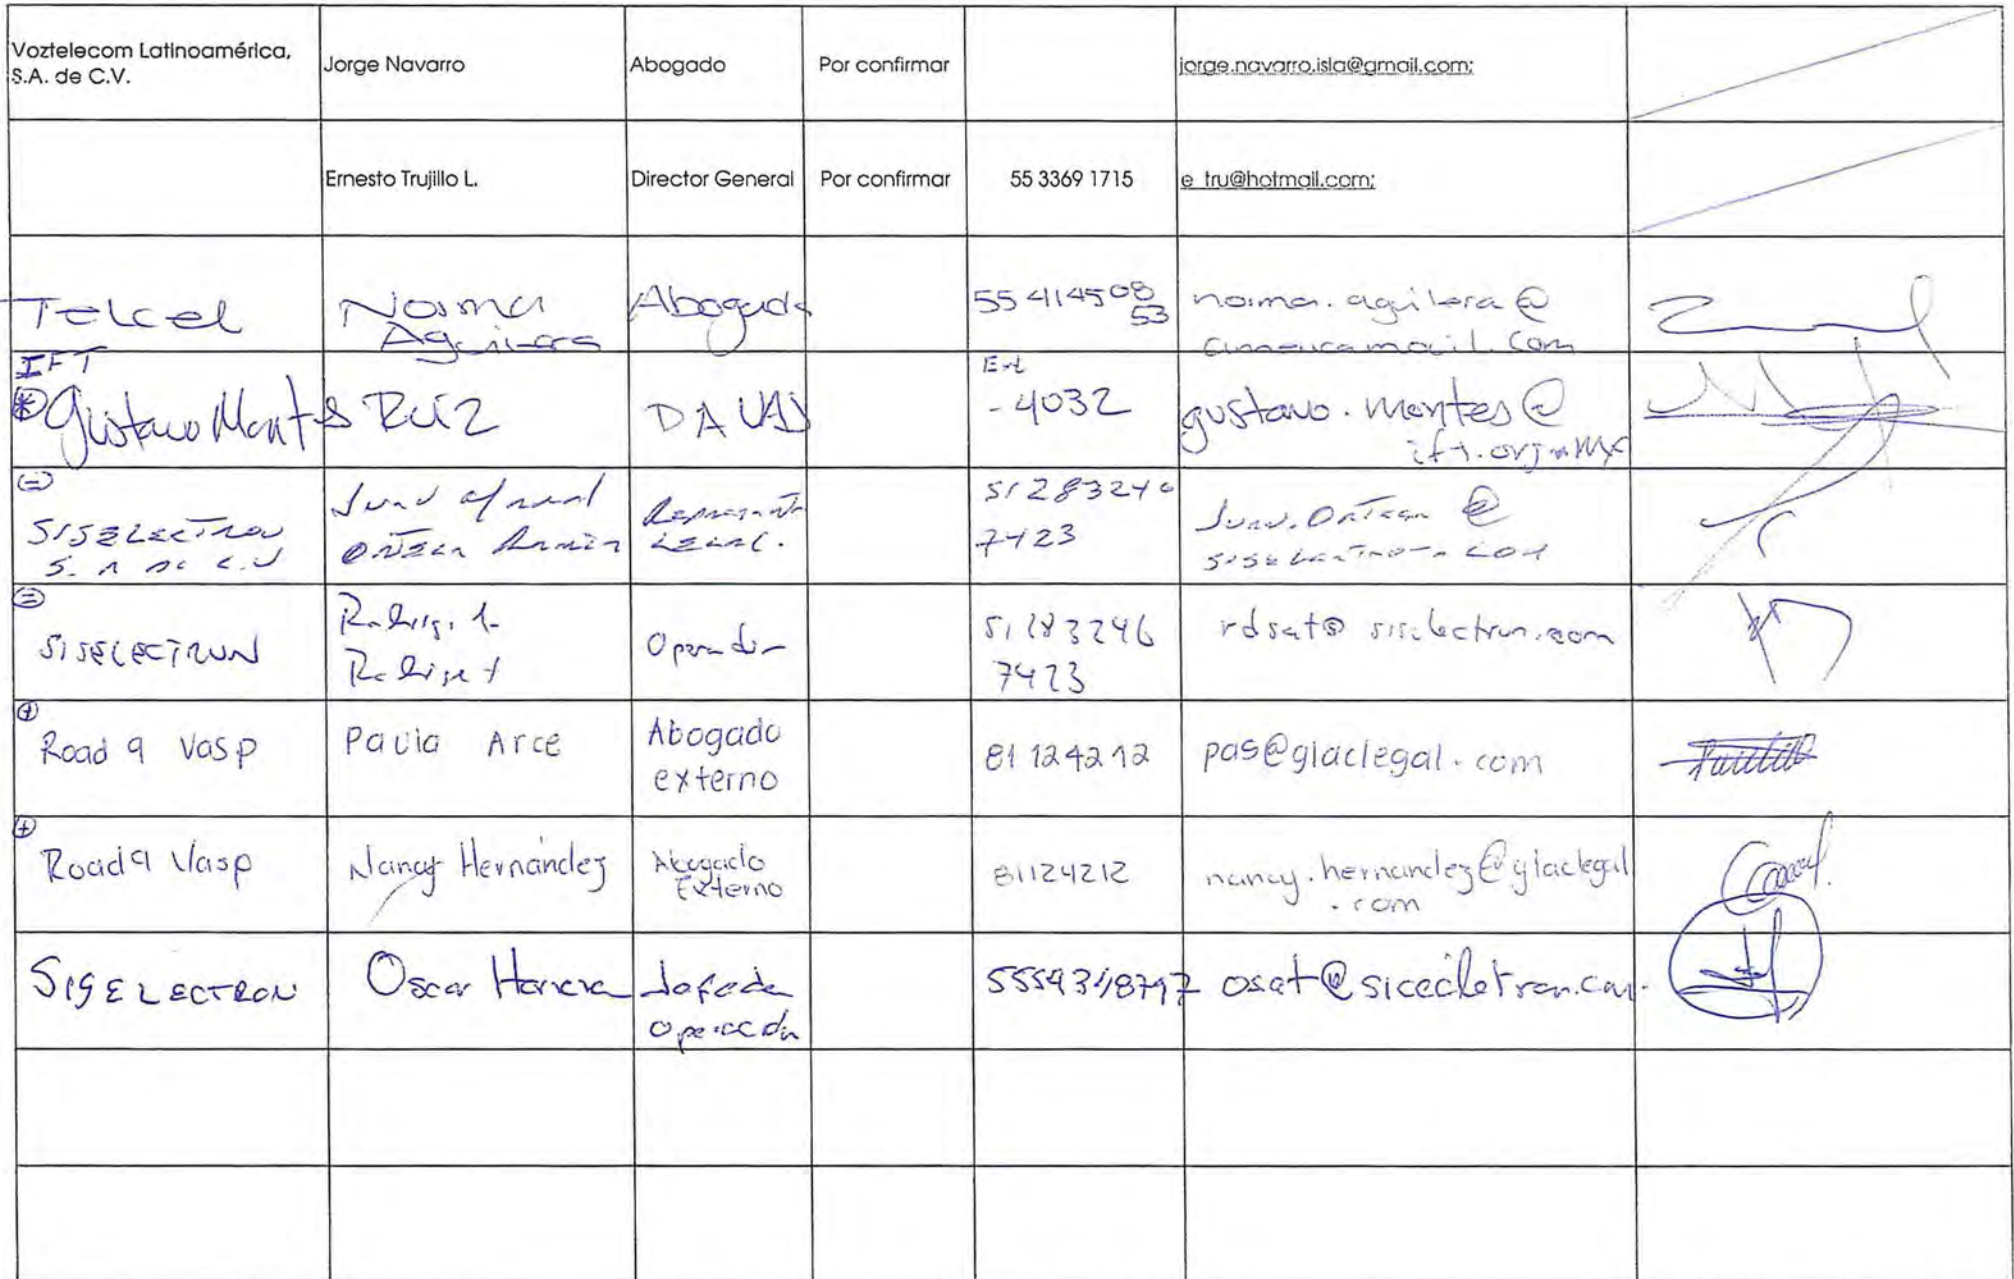 Voztelecom Latinoamérica, S.A. de C.V. Jorge Navarro Abogado Por confirmar jorge.navarro.isla@gmail.com;
Ernesto Trujillo L. Director General Por confirmar 55 3369 1715 e_tru@hotmail.com;
Telcel Norma Aguilera Abogada 55 41450853 norma.aguilera@americamovil.com
IFT
Gustavo Montes Ruiz Ext -4032 gustavo.montes@ift.org.mx
SISELECTRON S.A DE C.V Representante LEGAL. 51283246 7423
SISELECTRON Operador 51283246 7423 rdsat@siselectron.com
Road 9 Vasp Paula Arce Abogado externo 81 124212 pas@glaclegal.com
Road 9 Vasp Nancy Hernández Abogado Externo 81124212 nancy.hernandez@glaclegal.com
SISELECTRON Oscar Herrera Jefe de operación